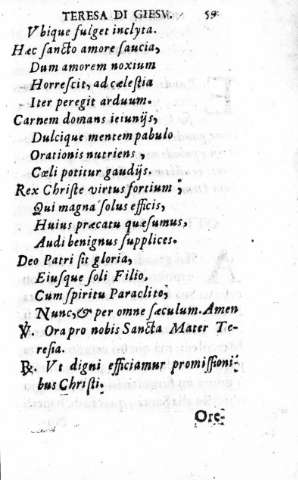 TERESA DI GIESV. 59
Vbique fulget inclyta.
Hæc sancto amore saucia,
Dum amorem noxium
Horrescit, ad cælestia
Iter peregit arduum.
Carnem domans ieiunijs,
Dulcique mentem pabulo
Orationis nutriens,
Cæli potitur gaudijs.
Rex Christe virtus fortium,
Qui magna solus efficis,
Huius præcatu quæsumus,
Audi benignus supplices.
Deo Patri sit gloria,
Eiusque soli Filio,
Cum spiritu Paraclito,
Nunc, & per omne sæculum. Amen
℣. Ora pro nobis Sancta Mater Te-
resia.
℟. Vt digni efficiamur promissioni-
bus Christi.
Ore-